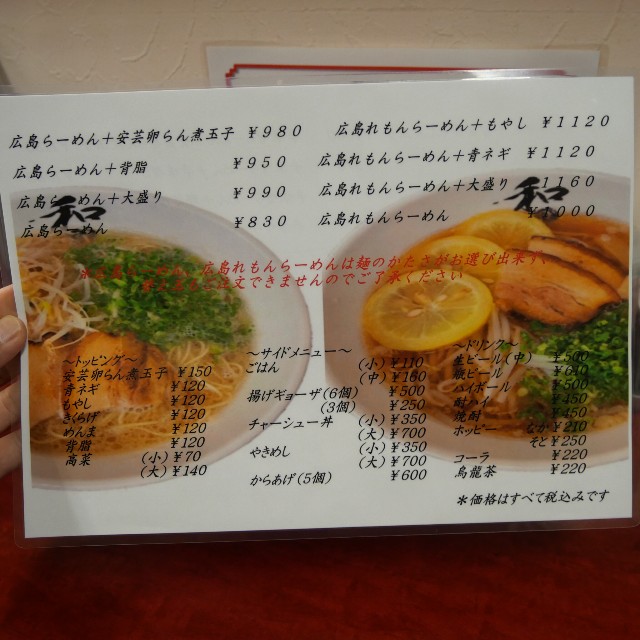 広島らーめん+安芸卵らん煮玉子 ¥980
広島らーめん+背脂 ¥950
広島らーめん+大盛り ¥990
広島らーめん ¥830
広島れもんらーめん+もやし ¥1120
広島れもんらーめん+青ネギ ¥1120
広島れもんらーめん+大盛り ¥1160
広島れもんらーめん ¥1000
和
和
広島れもんらーめんは麺のかたさがお選び出来ず、
替え玉もご注文できませんのでご了承ください
～トッピング～
安芸卵らん煮玉子 ¥150
青ネギ ¥120
もやし ¥120
きくらげ ¥120
めんま ¥120
背脂 ¥120
高菜 (小)¥70
(大)¥140
～サイドメニュー～
ごはん (小)¥110
(中)¥180
揚げギョーザ(6個) ¥500
(3個) ¥250
チャーシュー丼 (小)¥350
(大)¥700
やきめし (小)¥350
(大)¥700
からあげ(5個) ¥600
～ドリンク～
生ビール(中) ¥500
瓶ビール ¥640
ハイボール ¥500
酎ハイ ¥450
焼酎 ¥450
ホッピー なか¥210
そと¥250
コーラ ¥220
烏龍茶 ¥220
*価格はすべて税込みです